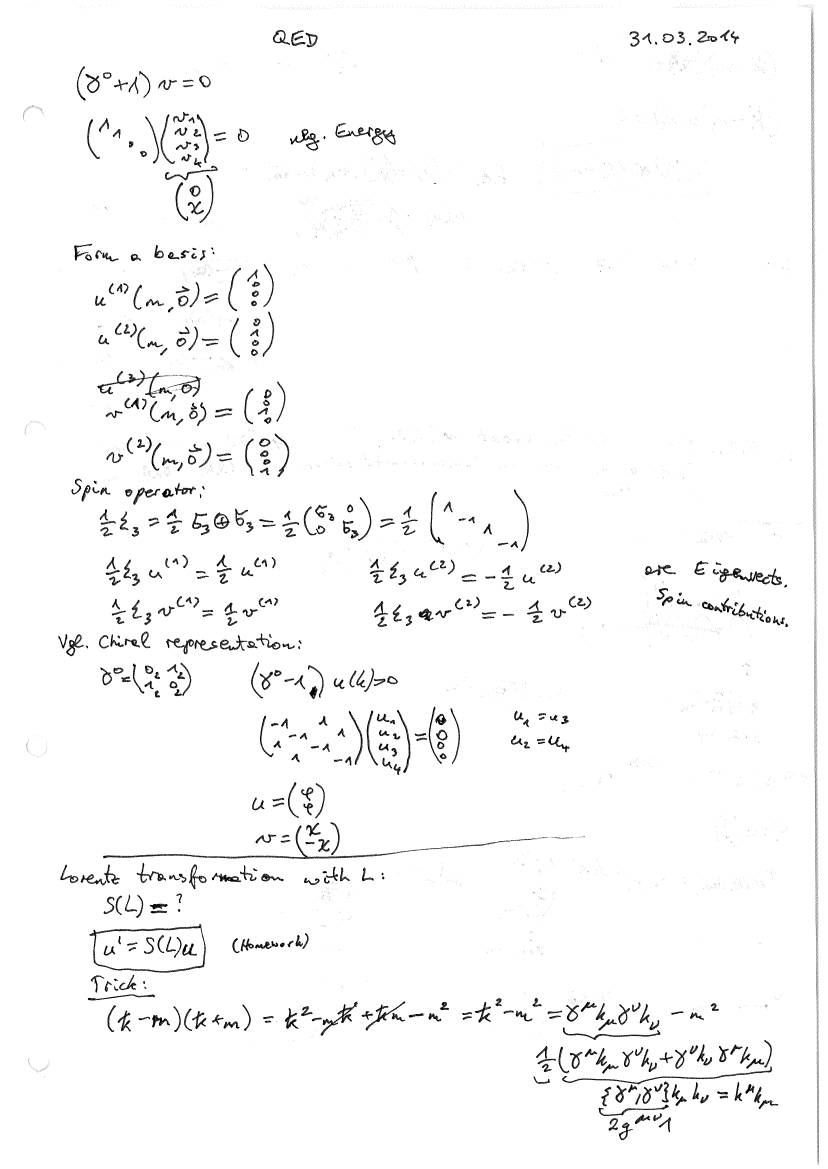 QED 31.03.2014
(γ⁰+1) v = 0
(1 1 0 0)(v₁ v₂ v₃ v₄) = 0 neg. Energy
(0 χ)
Form a basis:
u⁽¹⁾(m, 0⃗) = (1 0 0 0)
u⁽²⁾(m, 0⃗) = (0 1 0 0)
u⁽³⁾(m, 0)
v⁽¹⁾(m, 0⃗) = (0 0 1 0)
v⁽²⁾(m, 0⃗) = (0 0 0 1)
Spin operator:
½ Σ₃ = ½ σ₃⊕σ₃ = ½ (σ₃ 0 0 σ₃) = ½ (1 -1 1 -1)
½Σ₃ u⁽¹⁾ = ½ u⁽¹⁾ ½Σ₃ u⁽²⁾ = -½ u⁽²⁾ are Eigenvects.
½Σ₃ v⁽¹⁾ = ½ v⁽¹⁾ ½Σ₃ v⁽²⁾ = - ½ v⁽²⁾ Spin contributions.
Vgl. Chiral representation:
γ⁰ = (0₂ 1₂ 1₂ 0₂) (γ⁰-1) u(k)=0
(-1 1 -1 1 1 -1 1 -1)(u₁ u₂ u₃ u₄) = (0 0 0 0) u₁ = u₃
u₂ = u₄
u = (φ φ)
v = (χ -χ)
Lorentz transformation with L:
S(L) = ?
u' = S(L)u (Homework)
Trick:
(k̸ - m)(k̸ + m) = k̸² - mk̸ + k̸m - m² = k̸² - m² = γ^μ k_μ γ^ν k_ν - m²
½ (γ^μ k_μ γ^ν k_ν + γ^ν k_ν γ^μ k_μ)
{γ^μ, γ^ν} k_μ k_ν = k^μ k_μ
2g^μν 1